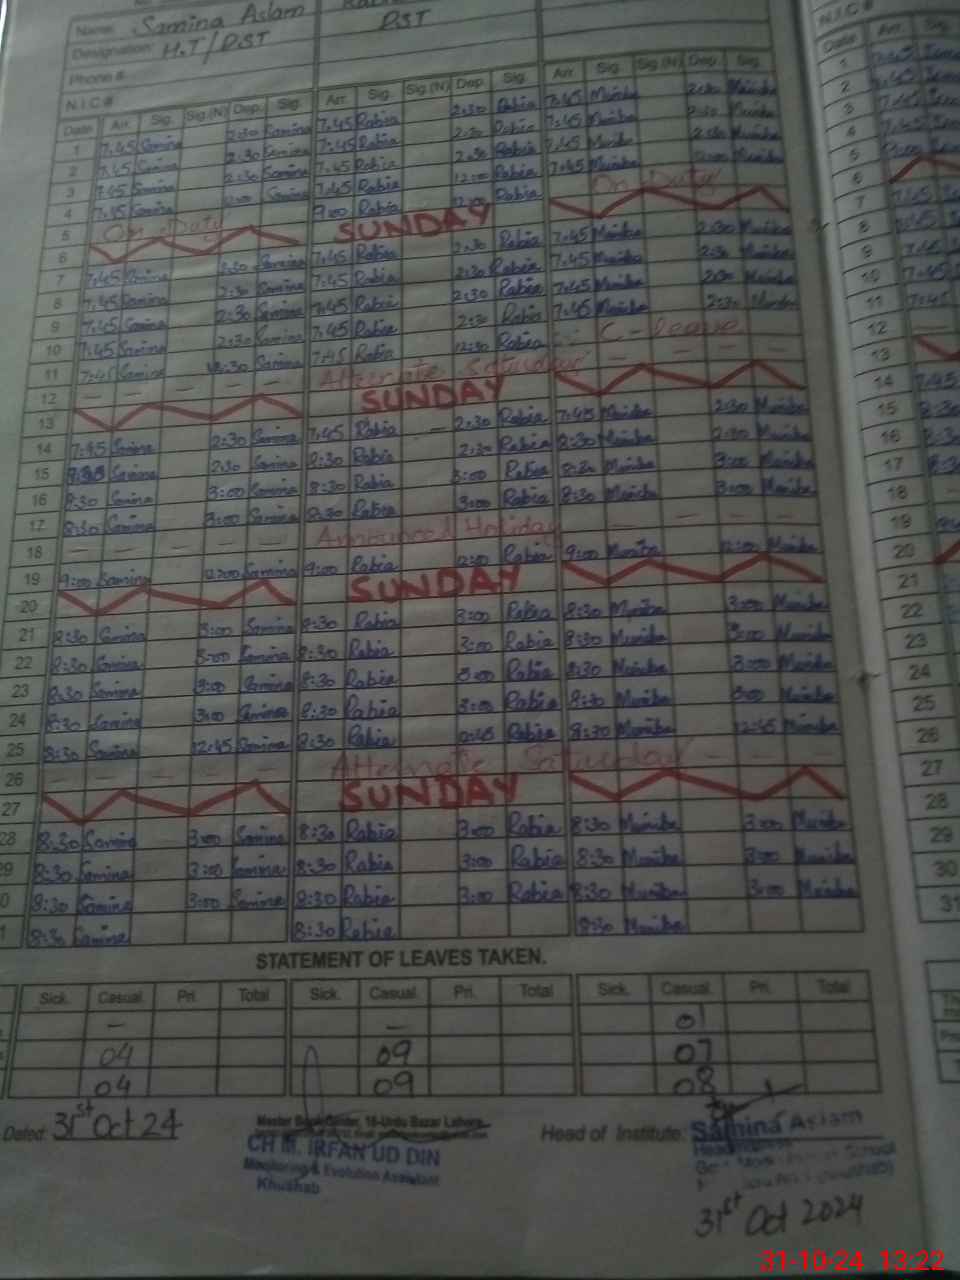 Name: Samina Aslam
Designation: H.T / PST PST
Phone #
N.I.C #
Date Arr. Sig. Sig.(N) Dep. Sig. Arr. Sig. Sig.(N) Dep. Sig. Arr. Sig. Sig.(N) Dep. Sig.
1 7.45 Samina 2:30 Samina 7.45 Rabia 2:30 Rabia 7:45 Muniba 2:30 Muniba
2 7.45 Samina 2:30 Samina 7:45 Rabia 2:30 Rabia 7:45 Muniba 2:30 Muniba
3 7.45 Samina 2:30 Samina 7.45 Rabia 2:30 Rabia 7.45 Muniba 2:30 Muniba
4 7:45 Samina 12:00 Samina 7:45 Rabia 12:00 Rabia 7:45 Muniba 12:00 Muniba
5 On Duty 9:00 Rabia 12:00 Rabia On Duty
6 SUNDAY
7 7:45 Samina 2:30 Samina 7:45 Rabia 2:30 Rabia 7:45 Muniba 2:30 Muniba
8 7:45 Samina 2:30 Samina 7:45 Rabia 2:30 Rabia 7:45 Muniba 2:30 Muniba
9 7:45 Samina 2:30 Samina 7:45 Rabia 2:30 Rabia 7:45 Muniba 2:30 Muniba
10 7:45 Samina 2:30 Samina 7:45 Rabia 2:30 Rabia 7:45 Muniba 2:30 Muniba
11 7:45 Samina 12:30 Samina 7:45 Rabia 12:30 Rabia C - leave
12 Alternate Saturday
13 SUNDAY
14 7:45 Samina 2:30 Samina 7:45 Rabia 2:30 Rabia 7:45 Muniba 2:30 Muniba
15 8:30 Samina 2:30 Samina 8:30 Rabia 2:30 Rabia 8:30 Muniba 2:30 Muniba
16 8:30 Samina 3:00 Samina 8:30 Rabia 3:00 Rabia 8:30 Muniba 3:00 Muniba
17 8:30 Samina 3:00 Samina 8:30 Rabia 3:00 Rabia 8:30 Muniba 3:00 Muniba
18 Announced Holiday
19 9:00 Samina 12:00 Samina 9:00 Rabia 12:00 Rabia 9:00 Muniba 12:00 Muniba
20 SUNDAY
21 8:30 Samina 3:00 Samina 8:30 Rabia 3:00 Rabia 8:30 Muniba 3:00 Muniba
22 8:30 Samina 3:00 Samina 8:30 Rabia 3:00 Rabia 8:30 Muniba 3:00 Muniba
23 8:30 Samina 3:00 Samina 8:30 Rabia 3:00 Rabia 8:30 Muniba 3:00 Muniba
24 8:30 Samina 3:00 Samina 8:30 Rabia 3:00 Rabia 8:30 Muniba 3:00 Muniba
25 8:30 Samina 12:45 Samina 8:30 Rabia 12:45 Rabia 8:30 Muniba 12:45 Muniba
26 Alternate Saturday
27 SUNDAY
28 8:30 Samina 3:00 Samina 8:30 Rabia 3:00 Rabia 8:30 Muniba 3:00 Muniba
29 8:30 Samina 3:00 Samina 8:30 Rabia 3:00 Rabia 8:30 Muniba 3:00 Muniba
0 8:30 Samina 3:00 Samina 8:30 Rabia 3:00 Rabia 8:30 Muniba 3:00 Muniba
1 8:30 Samina 8:30 Rabia 8:30 Muniba
STATEMENT OF LEAVES TAKEN.
Sick. Casual. Pri. Total Sick. Casual. Pri. Total Sick. Casual. Pri. Total
– – 01
04 09 07
04 09 08
Dated: 31st Oct 24
Master Book Center, 16-Urdu Bazar Lahore
CH M. IRFAN UD DIN
Monitoring & Evolution Assistant
Khushab
Head of Institute:
Samina Aslam
Headmistress
School
31st Oct 2024
N.I.C #
Date Arr. Sig.
1
2
3
4
5
6
7
8
9
10
11
12
13
14
15
16
17
18
19
20
21
22
23
24
25
26
27
28
29
30
31
31-10-24 13:22